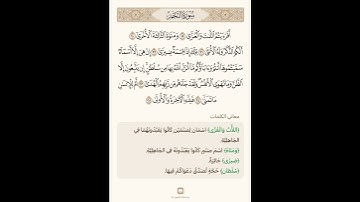 سُورَةُ النَّجْمِ
أَفَرَءَيْتُمُ ٱللَّٰتَ وَٱلْعُزَّىٰ ۝ وَمَنَوٰةَ ٱلثَّالِثَةَ ٱلْأُخْرَىٰٓ ۝
أَلَكُمُ ٱلذَّكَرُ وَلَهُ ٱلْأُنثَىٰ ۝ تِلْكَ إِذًا قِسْمَةٌ ضِيزَىٰٓ ۝ إِنْ هِىَ إِلَّآ أَسْمَآءٌ
سَمَّيْتُمُوهَآ أَنتُمْ وَءَابَآؤُكُم مَّآ أَنزَلَ ٱللَّهُ بِهَا مِن سُلْطَٰنٍ ۚ إِن يَتَّبِعُونَ إِلَّا
ٱلظَّنَّ وَمَا تَهْوَى ٱلْأَنفُسُ ۖ وَلَقَدْ جَآءَهُم مِّن رَّبِّهِمُ ٱلْهُدَىٰٓ ۝ أَمْ لِلْإِنسَٰنِ
مَا تَمَنَّىٰ ۝ فَلِلَّهِ ٱلْءَاخِرَةُ وَٱلْأُولَىٰ ۝
معاني الكلمات
﴿اللَّاتَ وَالْعُزَّى﴾ اسْمَانِ لِصَنَمَيْنِ كَانُوا يَعْبُدُونَهُمَا فِي
الجَاهِلِيَّةِ.
﴿وَمَنَاةَ﴾ اسْمُ صَنَمٍ كَانُوا يَعْبُدُونَهُ فِي الجَاهِلِيَّةِ.
﴿ضِيزَى﴾ جَائِرَةٌ.
﴿سُلْطَانٍ﴾ حُجَّةٍ تُصَدِّقُ دَعْوَاكُمْ فِيهَا.